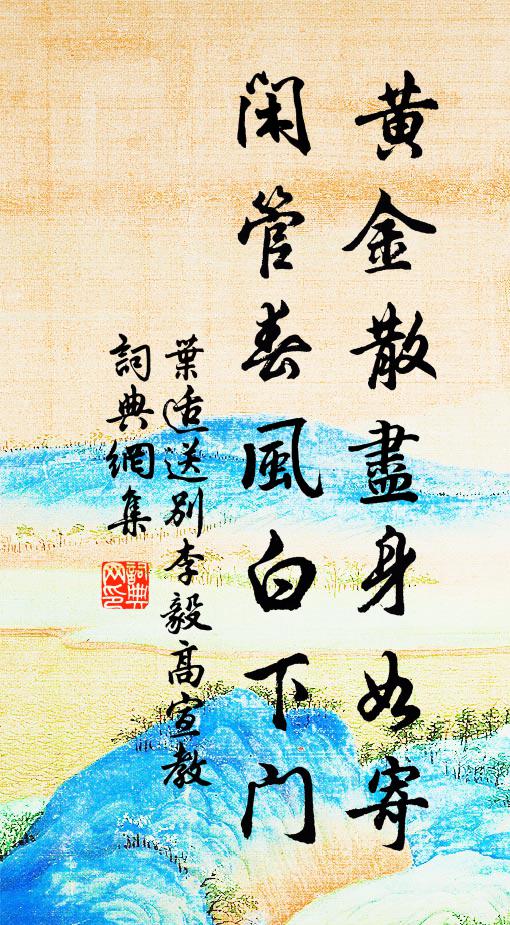 黄金散盡身如寄
閑管春風白下门
葉适送别李毅高宣教
詞典網集
詞典网印